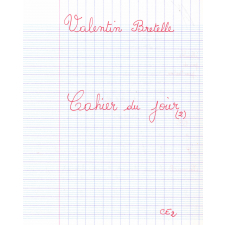 Valentin Bretelle
Cahier du jour
(2)
CE2